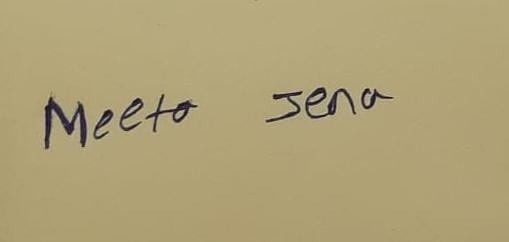 Meeta Jena